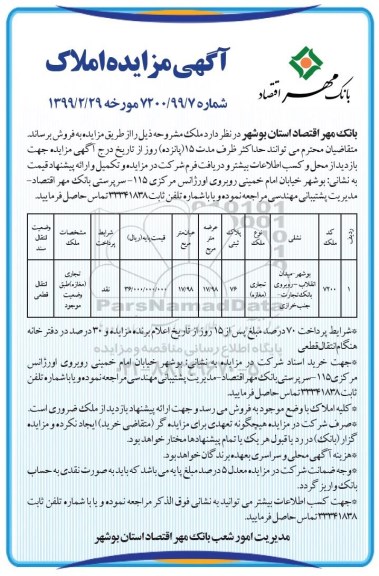 آگهی مزایده املاک
شماره ۷۲۰۰/۹۹/۷ مورخه ۱۳۹۹/۲/۲۹
بانک مهر اقتصاد
بانک مهر اقتصاد استان بوشهر در نظر دارد ملک مشروحه ذیل را از طریق مزایده به فروش برساند.
متقاضیان محترم می توانند حداکثر ظرف مدت ۱۵(پانزده) روز از تاریخ درج آگهی مزایده جهت
بازدید از محل و کسب اطلاعات بیشتر و دریافت فرم شرکت در مزایده و تکمیل و ارائه پیشنهاد قیمت
به نشانی: بوشهر خیابان امام خمینی روبروی اورژانس مرکزی ۱۱۵-سرپرستی بانک مهر اقتصاد-
مدیریت پشتیبانی مهندسی مراجعه نموده و یا با شماره تلفن ثابت ۳۳۳۴۱۸۳۸ تماس حاصل فرمایید.
ردیف کد ملک نشانی نوع ملک پلاک ثبتی عرصه متر مربع اعیان متر مربع قیمت پایه (ریال) شرایط پرداخت مشخصات ملک وضعیت سند انتقال
۱ ۷۲۰۰ بوشهر-میدان انقلاب-روبروی بانک تجارت-جنب خرازی تجاری (مغازه) ۷۶ ۱۷/۹۸ ۱۷/۹۸ ۳۶/۰۰۰/۰۰۰/۰۰۰ نقد تجاری (مغازه) طبق وضعیت موجود انتقال قطعی
*شرایط پرداخت ۷۰ درصد مبلغ پس از ۱۵ روز از تاریخ اعلام برنده مزایده و ۳۰ درصد در دفتر خانه
هنگام انتقال قطعی
*جهت خرید اسناد شرکت در مزایده به نشانی: بوشهر خیابان امام خمینی روبروی اورژانس
مرکزی ۱۱۵-سرپرستی بانک مهر اقتصاد-مدیریت پشتیبانی مهندسی مراجعه نموده و یا با شماره تلفن
ثابت ۳۳۳۴۱۸۳۸ تماس حاصل فرمایید.
*کلیه املاک با وضع موجود به فروش می رسد و جهت ارائه پیشنهاد بازدید از ملک ضروری است.
*صرف شرکت در مزایده هیچگونه تعهدی برای مزایده گر (متقاضی خرید) ایجاد نکرده و مزایده
گزار (بانک) در رد یا قبول هر یک یا تمام پیشنهادها مختار خواهد بود.
*هزینه آگهی محلی و سراسری بعهده برندگان خواهد بود.
*وجه ضمانت شرکت در مزایده معدل ۵ درصد مبلغ پایه می باشد که باید به صورت نقدی به حساب
بانک واریز گردد.
*جهت کسب اطلاعات بیشتر می توانید به نشانی فوق الذکر مراجعه نموده و یا با شماره تلفن ثابت
۳۳۳۴۱۸۳۸ تماس حاصل فرمایید.
مدیریت امور شعب بانک مهر اقتصاد استان بوشهر